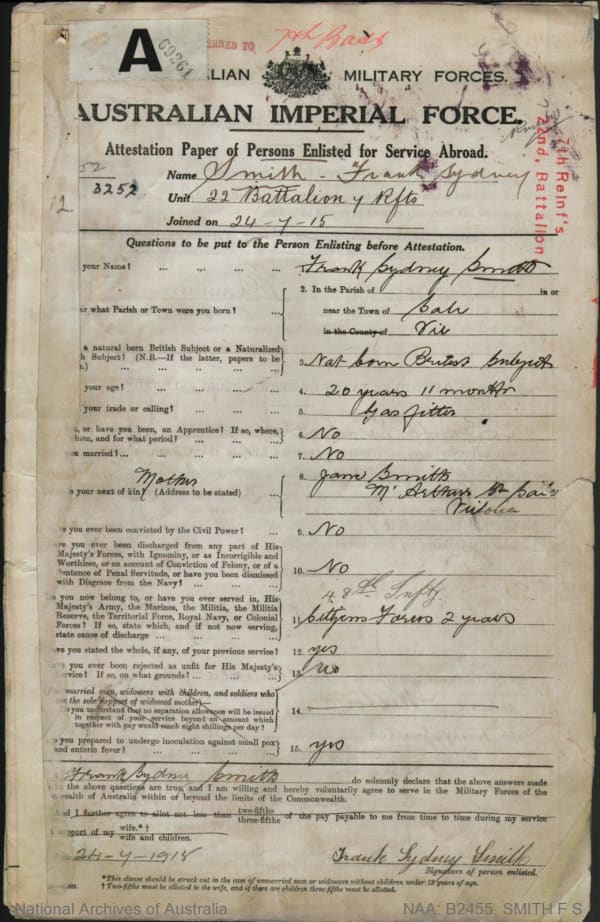 A
69261
RRED TO
7th Bads
ALIAN MILITARY FORCES.
AUSTRALIAN IMPERIAL FORCE.
Attestation Paper of Persons Enlisted for Service Abroad.
52
3252
12
Name Smith - Frank Sydney
Unit 22 Battalion 7 Rfts
Joined on 24-7-15
7th Reinf's
22nd, Battalion
Questions to be put to the Person Enlisting before Attestation.
your Name? ... ... ... ... Frank Sydney Smith
2. In the Parish of in or
r what Parish or Town were you born? ... near the Town of Sale
in the County of Vic
a natural born British Subject or a Naturalized
h Subject? (N.B.—If the latter, papers to be 3. Nat born British Subject
.)
your age? ... 4. 20 years 11 months
your trade or calling? ... 5. Gas fitter
, or have you been, an Apprentice? If so, where, 6. No
hom, and for what period? ...
u married?... ... 7. No
Mother 8. Jane Smith
s your next of kin? (Address to be stated) ... McArthur St Sale
Victoria
ve you ever been convicted by the Civil Power? ... 9. No
ve you ever been discharged from any part of His
Majesty's Forces, with Ignominy, or as Incorrigible and
Worthless, or on account of Conviction of Felony, or of a
Sentence of Penal Servitude, or have you been dismissed
with Disgrace from the Navy? ... 10. No
48th Infty
o you now belong to, or have you ever served in, His
Majesty's Army, the Marines, the Militia, the Militia
Reserve, the Territorial Force, Royal Navy, or Colonial
Forces? If so, state which, and if not now serving, 11. Citizens Forces 2 years
state cause of discharge ...
ve you stated the whole, if any, of your previous service? 12. yes
ve you ever been rejected as unfit for His Majesty's
ervice? If so, on what grounds? ... 13. No
married men, widowers with children, and soldiers who
are the sole support of widowed mother—
o you understand that no separation allowance will be issued
in respect of your service beyond an amount which
together with pay would reach eight shillings per day? 14.
o you prepared to undergo inoculation against small pox
and enteric fever? ... 15. yes
Frank Sydney Smith do solemnly declare that the above answers made
the above questions are true, and I am willing and hereby voluntarily agree to serve in the Military Forces of the
wealth of Australia within or beyond the limits of the Commonwealth.
And I further agree to allot not less than two-fifths three-fifths of the pay payable to me from time to time during my service
support of my wife.*† wife and children.
24-7-1915
Frank Sydney Smith
Signature of person enlisted.
*This clause should be struck out in the case of unmarried men or widowers without children under 18 years of age.
† Two-fifths must be allotted to the wife, and if there are children three-fifths must be allotted.
National Archives of Australia NAA: B2455, SMITH F S